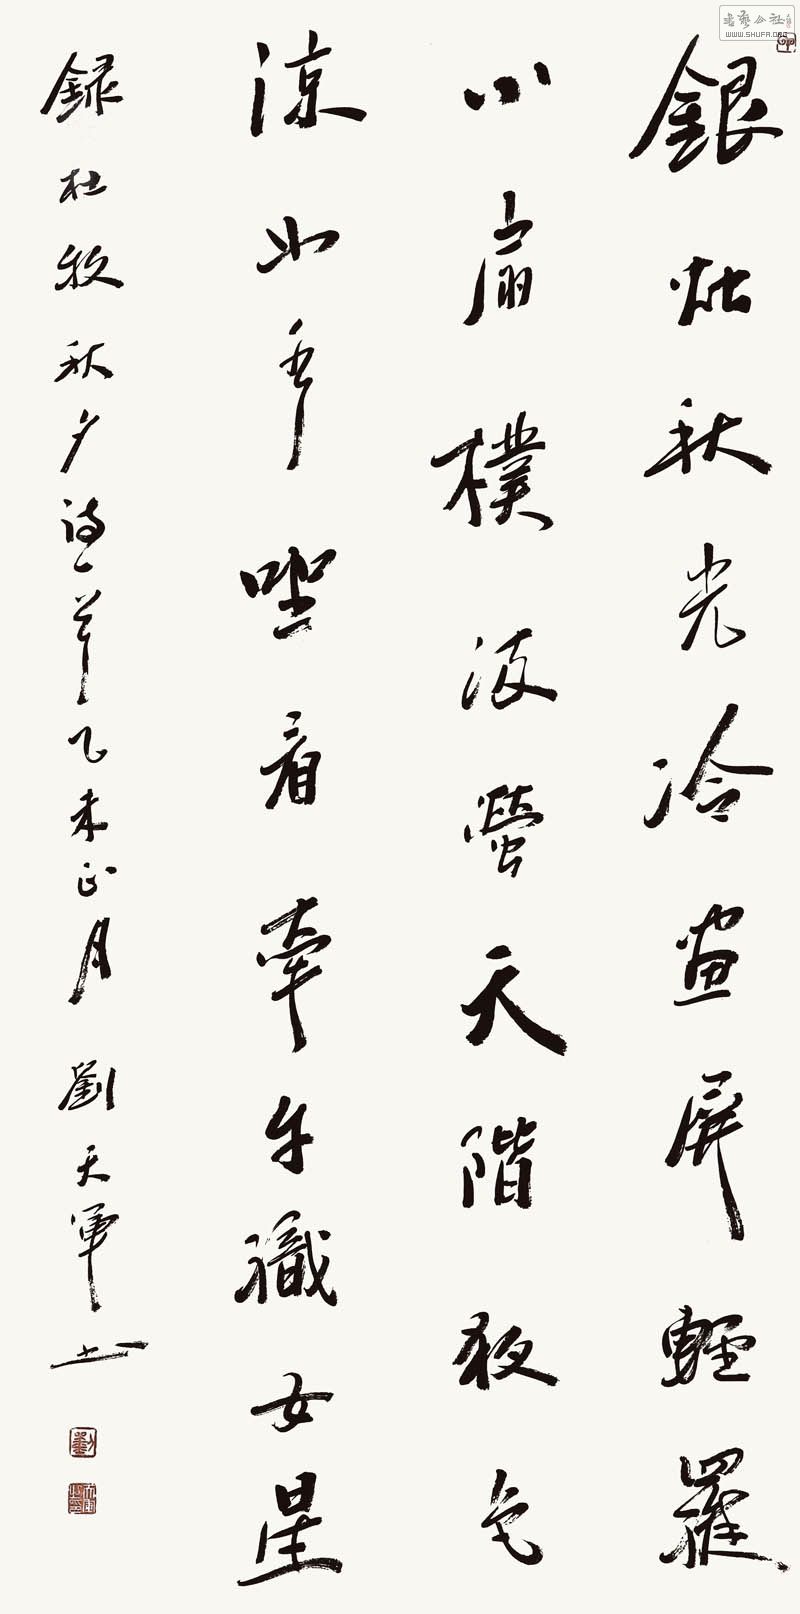 銀烛秋光冷畫屏輕羅
小扇樸流螢天階夜色
涼如水坐看牽牛織女星
錄杜牧秋夕詩一首乙未正月劉天軍書
書藝公社
WWW.SHUFA.ORG